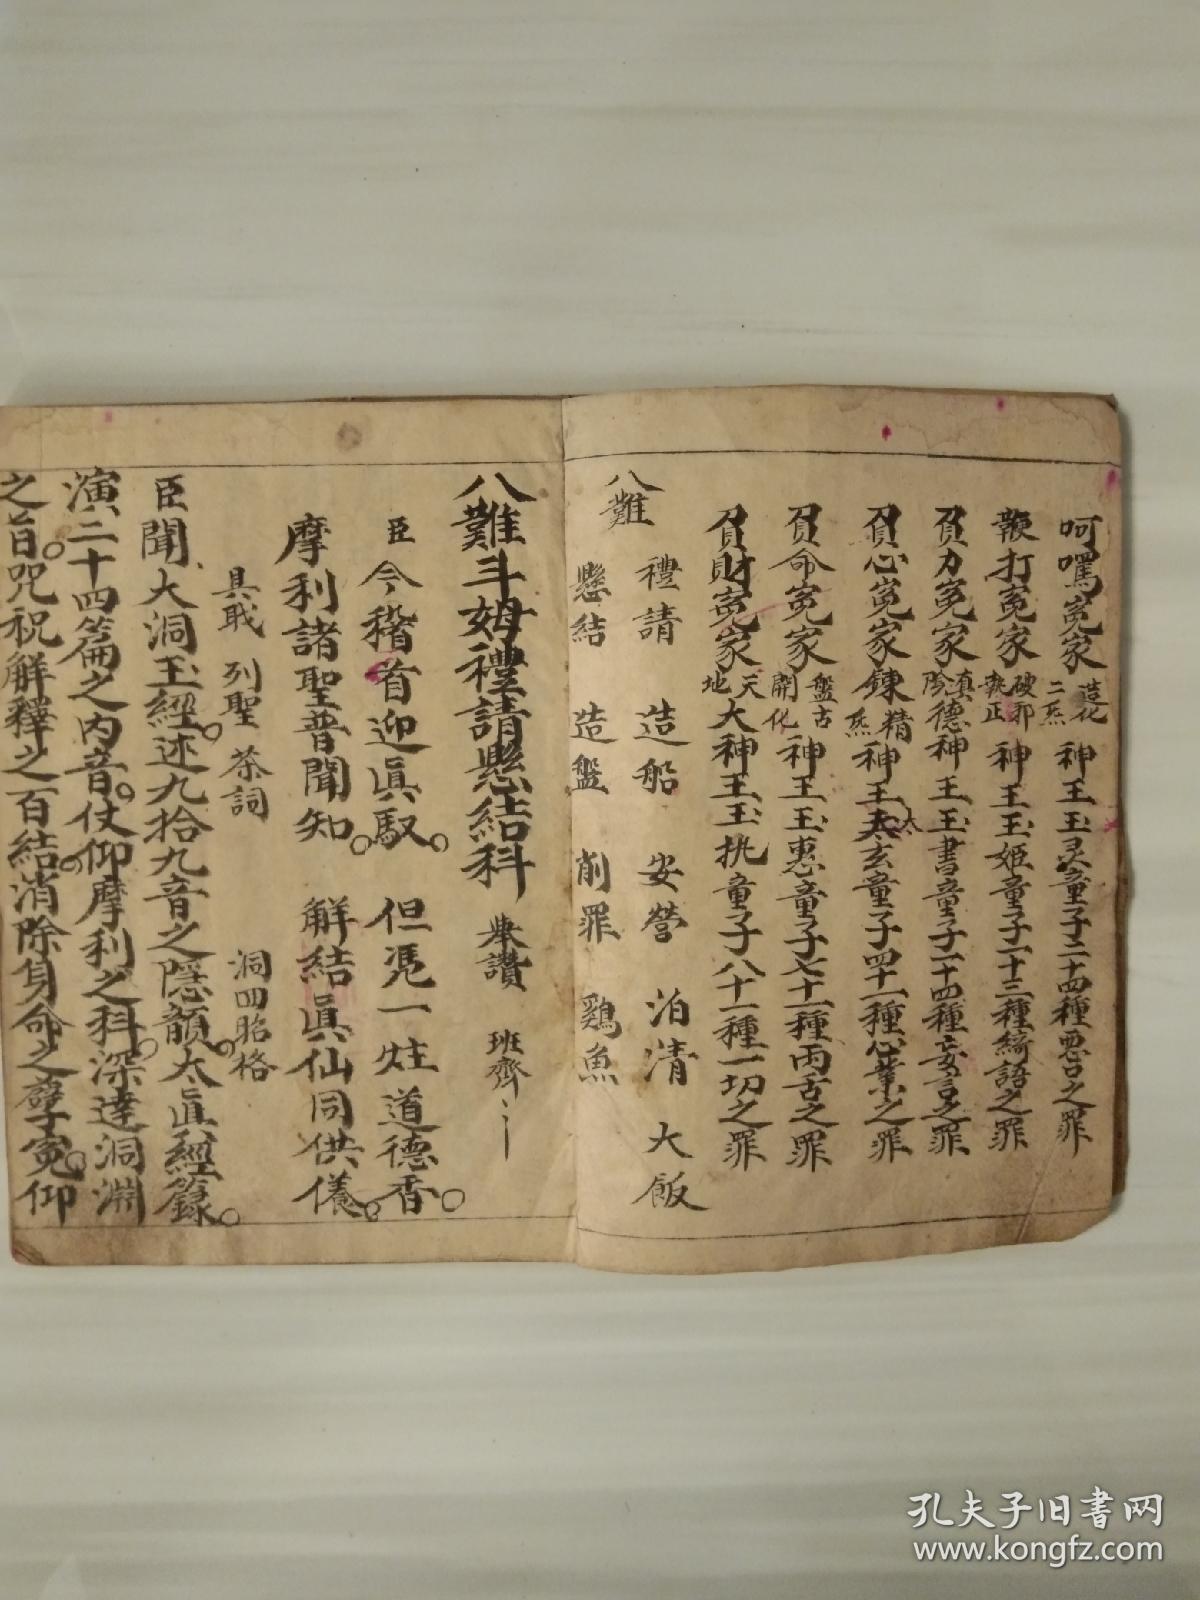 呵罵寃家造化二炁神王玉灵童子二十四種惡口之罪
鞭打寃家破邪執正神王玉姬童子一十三種綺語之罪
負力寃家滇陰德神王玉書童子一十四種妄言之罪
負心寃家鍊精炁神王太玄童子四十一種心業之罪
負命寃家盤古開化神王玉惠童子七十一種丙古之罪
負財寃家天地大神王玉挑童子八十一種一切之罪
八難
禮請 造船 安營 泊清 大飯
懸結 造盤 削罪 鷄魚
八難斗姆禮請懸結科 舉讚 班齊
臣今稽首迎眞馭 但凴一炷道德香
摩利諸聖普聞知 解結眞仙同供養
具戢 列聖 茶詞 洞四昭格
臣聞大洞玉經述九拾九音之隱韻太眞經籙
演二十四篇之内音仗仰摩利之科深達洞淵
之旨咒祝解釋之百結消除負命之孽寃仰
孔夫子旧书网
www.kongfz.com